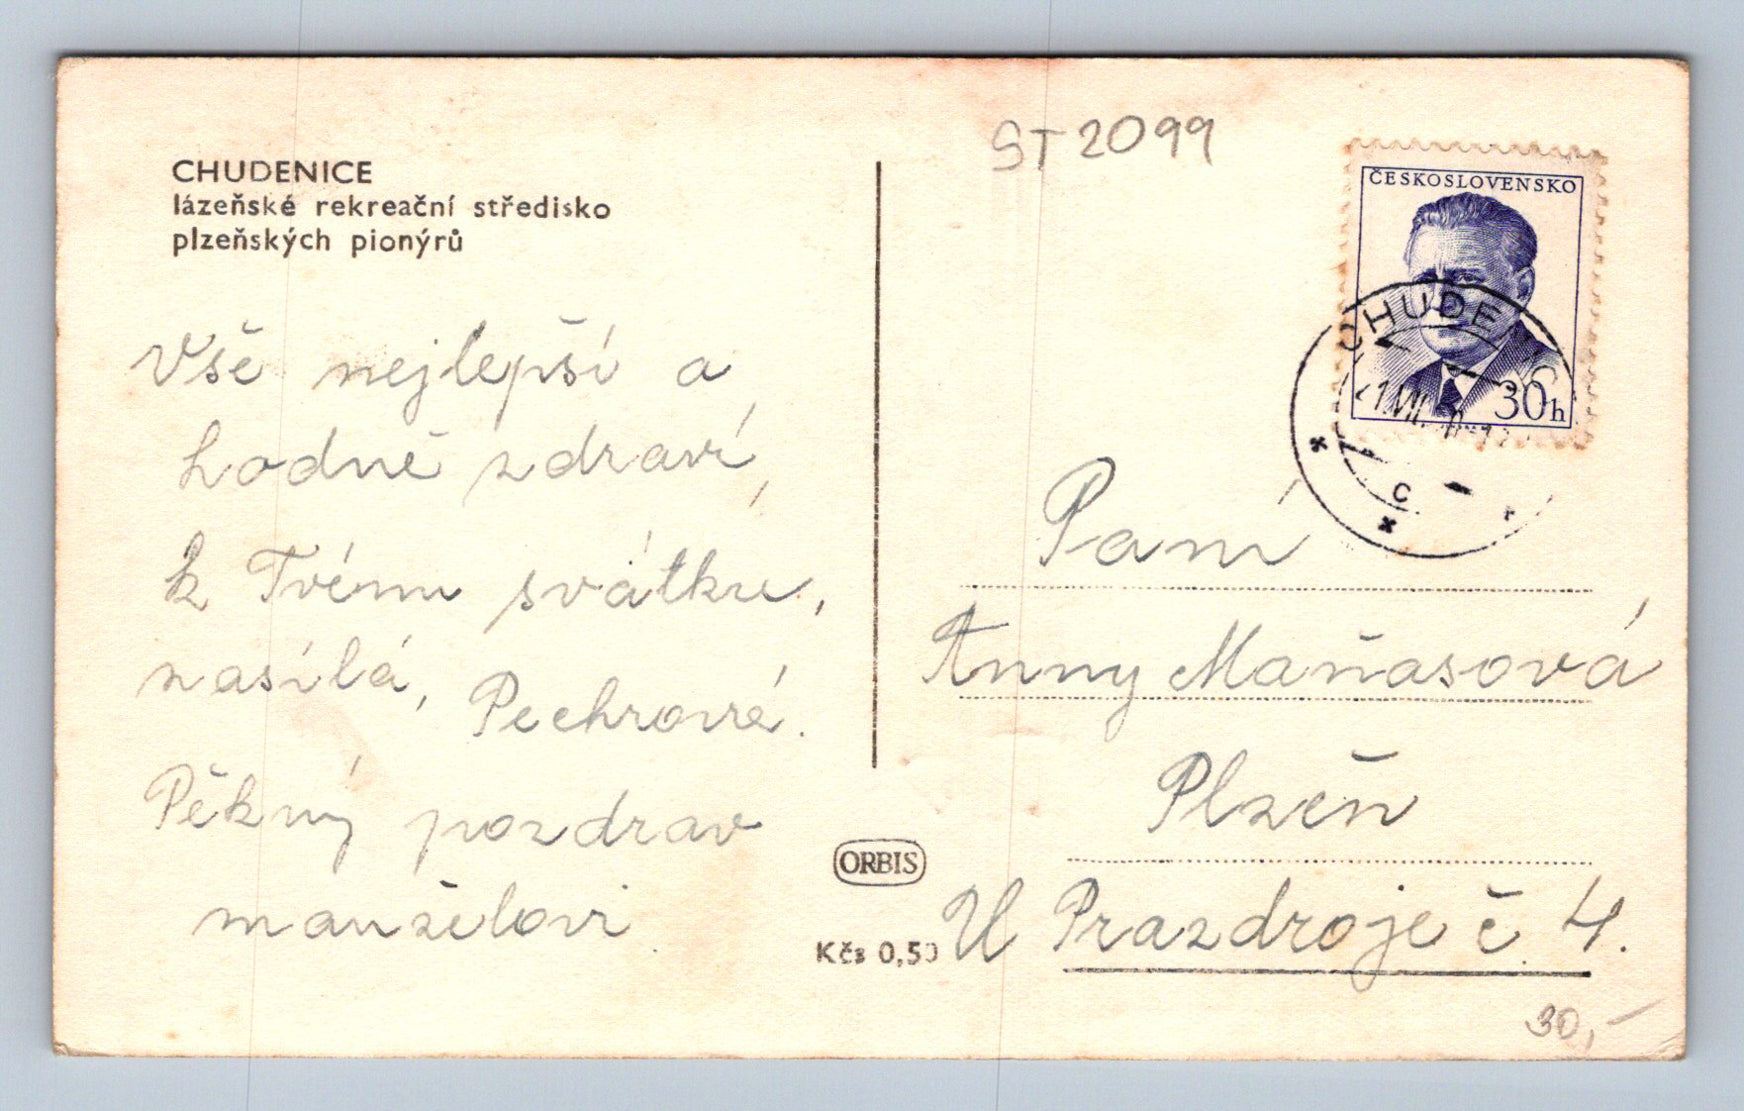 CHUDENICE
lázeňské rekreační středisko
plzeňských pionýrů
Vše nejlepší a
hodně zdraví,
k Tvému svátku,
zasílá, Pechrové.
Pěkný pozdrav
manželovi
ORBIS
Kčs 0,50
ST2099
ČESKOSLOVENSKO
30h
CHUDENIC
Paní
Anny Maňasová
Plzeň
U Prazdroje č. 4.
30,-